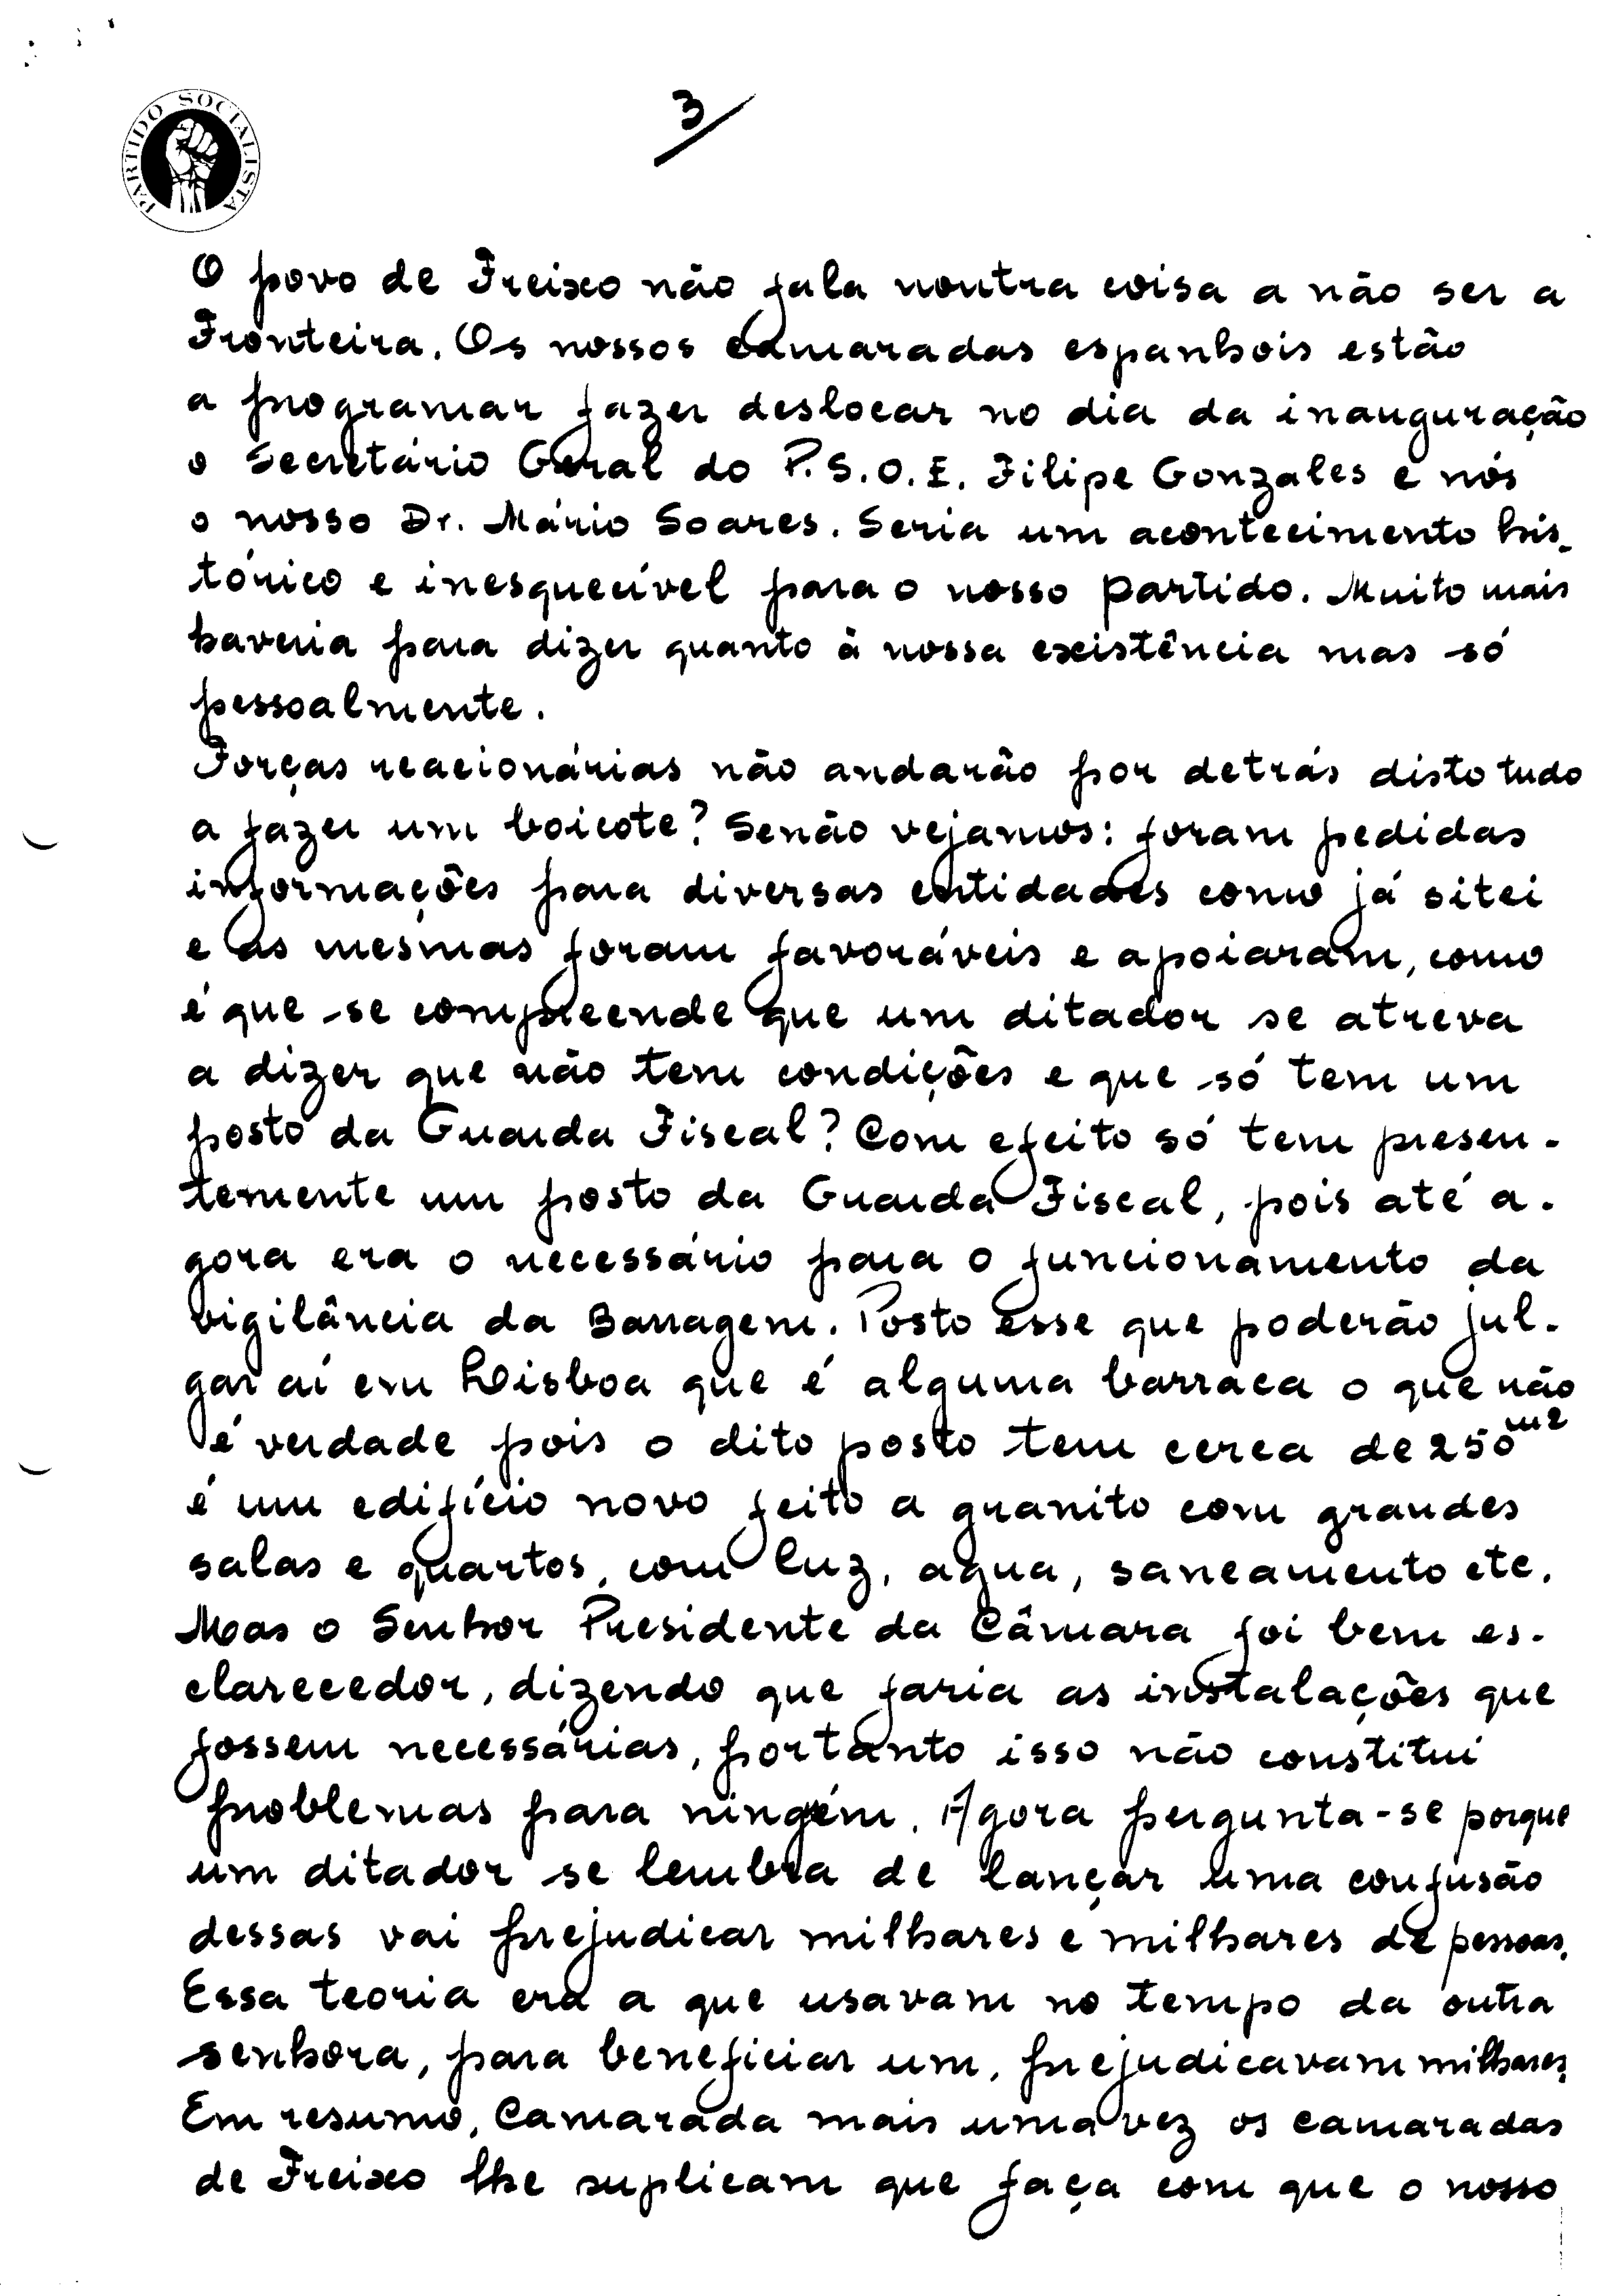 PARTIDO SOCIALISTA
3/
O povo de Freixo não fala noutra coisa a não ser a
Fronteira. Os nossos camaradas espanhois estão
a programar fazer deslocar no dia da inauguração
o Secretário Geral do P.S.O.E. Filipe Gonzales e nós
o nosso Dr. Mário Soares. Seria um acontecimento his-
tórico e inesquecível para o nosso Partido. Muito mais
haveria para dizer quanto à nossa existência mas só
pessoalmente.
Forças reacionárias não andarão por detrás disto tudo
a fazer um boicote? Senão vejamos: foram pedidas
informações para diversas entidades como já sitei
e as mesmas foram favoráveis e apoiaram, como
é que se compreende que um ditador se atreva
a dizer que não tem condições e que só tem um
posto da Guarda Fiscal? Com efeito só tem presen-
temente um posto da Guarda Fiscal, pois até a-
gora era o necessário para o funcionamento da
vigilância da Barragem. Posto esse que poderão jul-
gar aí em Lisboa que é alguma barraca o que não
é verdade pois o dito posto tem cerca de 250m2
é um edifício novo feito a granito com grandes
salas e quartos, com luz, agua, saneamento etc.
Mas o Senhor Presidente da Câmara foi bem es-
clarecedor, dizendo que faria as instalações que
fossem necessárias, portanto isso não constitui
problemas para ninguém. Agora pergunta-se porque
um ditador se lembra de lançar uma confusão
dessas vai prejudicar milhares e milhares de pessoas.
Essa teoria era a que usavam no tempo da outra
senhora, para beneficiar um, prejudicavam milhares.
Em resumo, Camarada mais uma vez os camaradas
de Freixo lhe suplicam que faça com que o nosso